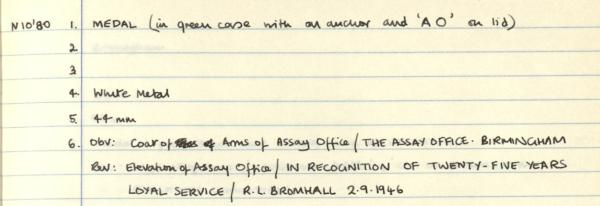 N10'80 1. MEDAL (in green case with an anchor and 'A O' on lid)
2
3
4. White Metal
5. 44 mm
6. Obv: Coat of Arms of Assay Office / THE ASSAY OFFICE. BIRMINGHAM
Rev: Elevation of Assay Office / IN RECOGNITION OF TWENTY-FIVE YEARS
LOYAL SERVICE / R.L. BROMHALL 2.9.1946